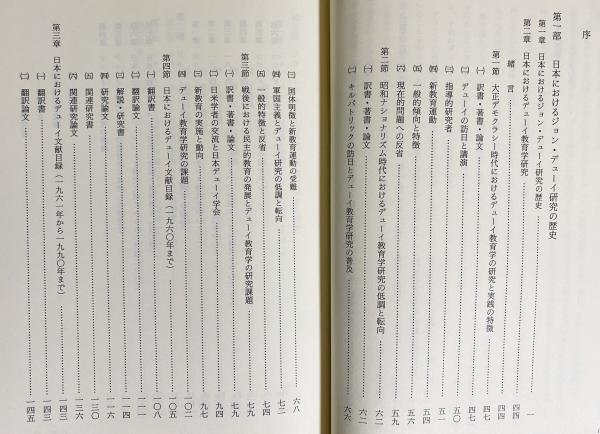 序
第一部　日本におけるジョン・デューイ研究の歴史
第一章　日本におけるジョン・デューイ研究の歴史……一
第二章　日本におけるデューイ教育学研究……四四
緒　言……四四
第一節　大正デモクラシー時代におけるデューイ教育学の研究と実践の特徴……四七
(一)　訳書・著書・論文……四七
(二)　デューイの訪日と講演……五〇
(三)　指導的研究者……五一
(四)　新教育運動……五四
(五)　一般的傾向と特徴……五六
(六)　現在的問題への反省……五九
第二節　昭和ナショナリズム時代におけるデューイ教育学研究の低調と転向……六二
(一)　訳書・著書・論文……六二
(二)　キルパトリックの訪日とデューイ教育学研究の普及……六六
(三)　国体明徴と新教育運動の受難……六八
(四)　軍国主義とデューイ研究の低調と転向……七二
(五)　一般的特徴と反省……七四
第三節　戦後における民主的教育の発展とデューイ教育学の研究課題……七九
(一)　訳書・著書・論文……七九
(二)　日米学者の交流と日本デューイ学会……九四
(三)　新教育の実施と動向……九七
(四)　デューイ教育学研究の課題……一〇二
第四節　日本におけるデューイ文献目録（一九六〇年まで）……一〇五
(一)　翻訳書……一〇八
(二)　翻訳論文……一一一
(三)　解説・研究書……一一一
(四)　研究論文……一一六
(五)　関連研究書……一三〇
(六)　関連研究論文……一三六
第三章　日本におけるデューイ文献目録（一九六一年から一九九〇年まで）……一四三
(一)　翻訳書……一四三
(二)　翻訳論文……一四五